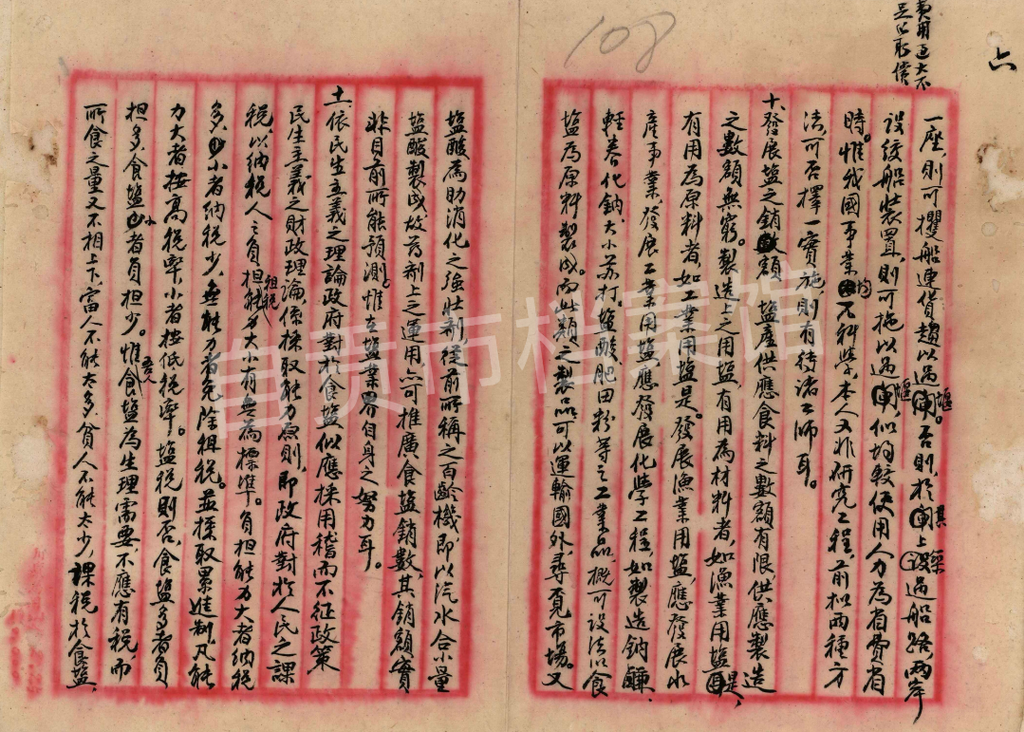 六
費用過大不
足以取償
108
一座，則可攖船連貨趨以過堰。否則，於其上設過船路，兩岸
設絞船裝置，則可拖以過堰，似均較使用人力為省費省
時。惟我國事業均不科學，本人又非研究工程，前拟兩種方
法，可否擇一實施則有待諸工師耳。
十、發展塩之銷額 塩產供應食料之數額有限，供應製造
之數額無窮。製造上之用塩有用為材料者，如漁業用塩是，
有用為原料者，如工業用塩是。發展漁業用塩，應發展水
產事業，發展工業用塩，應發展化學工程，如製造鈉鹻、
輕養化鈉、大小苏打、塩酸、肥田粉等之工業品，概可設法以食
塩為原料製成。而此類之製品可以運輸國外，尋覓市場。又
塩酸為助消化之強壯剂，從前所稱之百齡機，即以汽水合小量
塩酸製成，故药剂上之運用，亦可推廣食塩銷數，其銷額實
非目前所能預測，惟在塩業界自身之努力耳。
十一、依民生主義之理論政府對於食塩似應採用稽而不征政策
民生主義之財政理論，係採取能力原則，即政府對於人民之課
税，以納税人之負担租税能力大小有無為標準。負担能力大者納税
多，小者納税少，無能力者免除租税。並採取累進制，凡能
力大者按高税率，小者按低税率。塩税則否，食塩多者負
担多，食塩小者負担少。惟吾人食塩為生理需要，不應有税，而
所食之量又不相上下，富人不能太多，貧人不能太少，課税於食塩，
自贡市档案馆